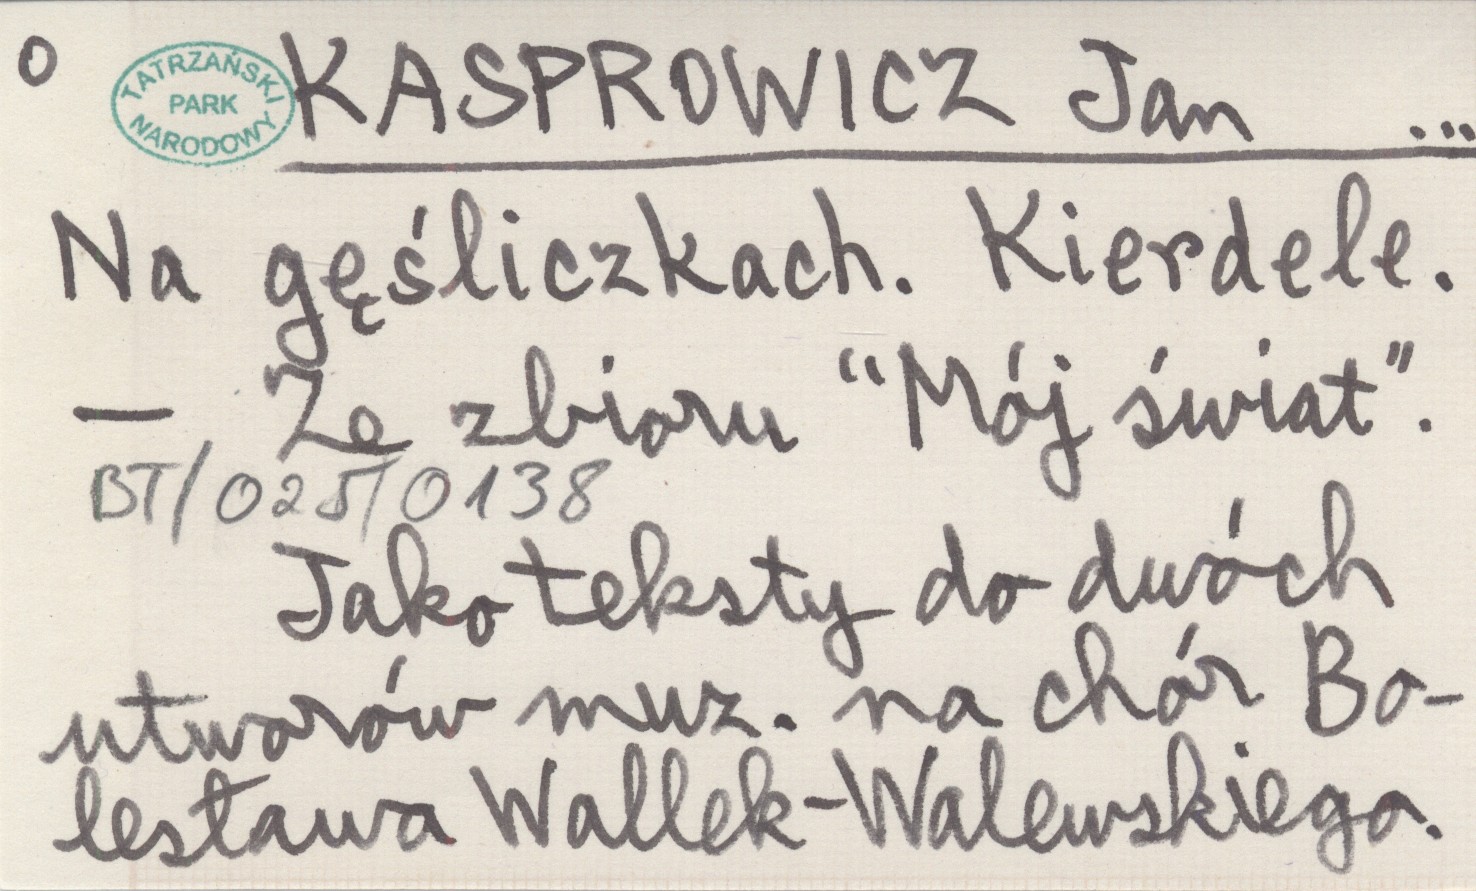 o TATRZAŃSKI PARK NARODOWY KASPROWICZ Jan ...
Na gęśliczkach. Kierdele.
— Ze zbioru “Mój świat”.
BT/025/0138
Jako teksty do dwóch
utworów muz. na chór Bo-
lesława Wallek-Walewskiego.